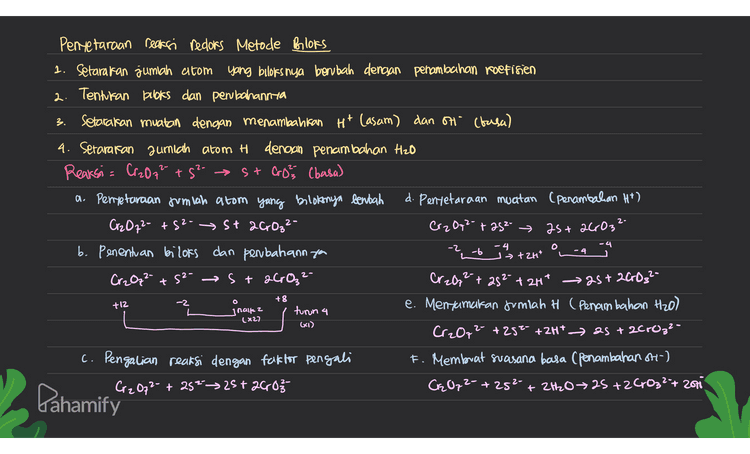 Penyetaraan reaksi redoks Metode Biloks
1. Setarakan jumlah atom yang biloksnya berubah dengan penambahan koefisien
2. Tentukan biloks dan perubahannya
3. Setarakan muatan dengan menambahkan H⁺ (asam) dan OH⁻ (basa)
4. Setarakan jumlah atom H dengan penambahan H₂O
Reaksi = Cr₂O₇²⁻ + S²⁻ → S + CrO₃²⁻ (basa)
a. Penyetaraan jumlah atom yang biloksnya berubah
Cr₂O₇²⁻ + S²⁻ → S + 2CrO₃²⁻
b. Penentuan biloks dan perubahannya
Cr₂O₇²⁻ + S²⁻ → S + 2CrO₃²⁻
+12 -2 0 +8
naik 2 turun 4
(x2) (x1)
c. Pengalian reaksi dengan faktor pengali
Cr₂O₇²⁻ + 2S²⁻ → 2S + 2CrO₃²⁻
d. Penyetaraan muatan (penambahan H⁺)
Cr₂O₇²⁻ + 2S²⁻ → 2S + 2CrO₃²⁻
-2 -6 -4 → +2H⁺ 0 -4 -4
Cr₂O₇²⁻ + 2S²⁻ + 2H⁺ → 2S + 2CrO₃²⁻
e. Menyamakan jumlah H (Penambahan H₂O)
Cr₂O₇²⁻ + 2S²⁻ + 2H⁺ → 2S + 2CrO₃²⁻
F. Membuat suasana basa (Penambahan OH⁻)
Cr₂O₇²⁻ + 2S²⁻ + 2H₂O → 2S + 2CrO₃²⁻ + 2OH⁻
Pahamify